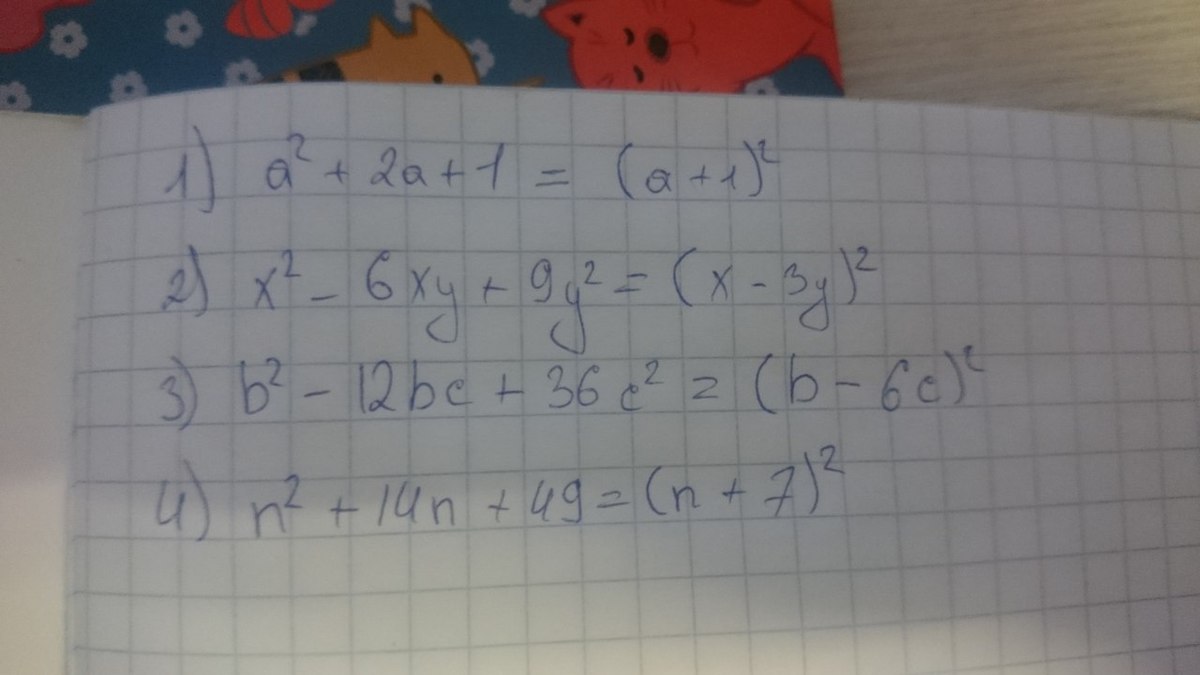 1) a² + 2a + 1 = (a + 1)²
2) x² - 6xy + 9y² = (x - 3y)²
3) b² - 12bc + 36c² = (b - 6c)²
4) n² + 14n + 49 = (n + 7)²